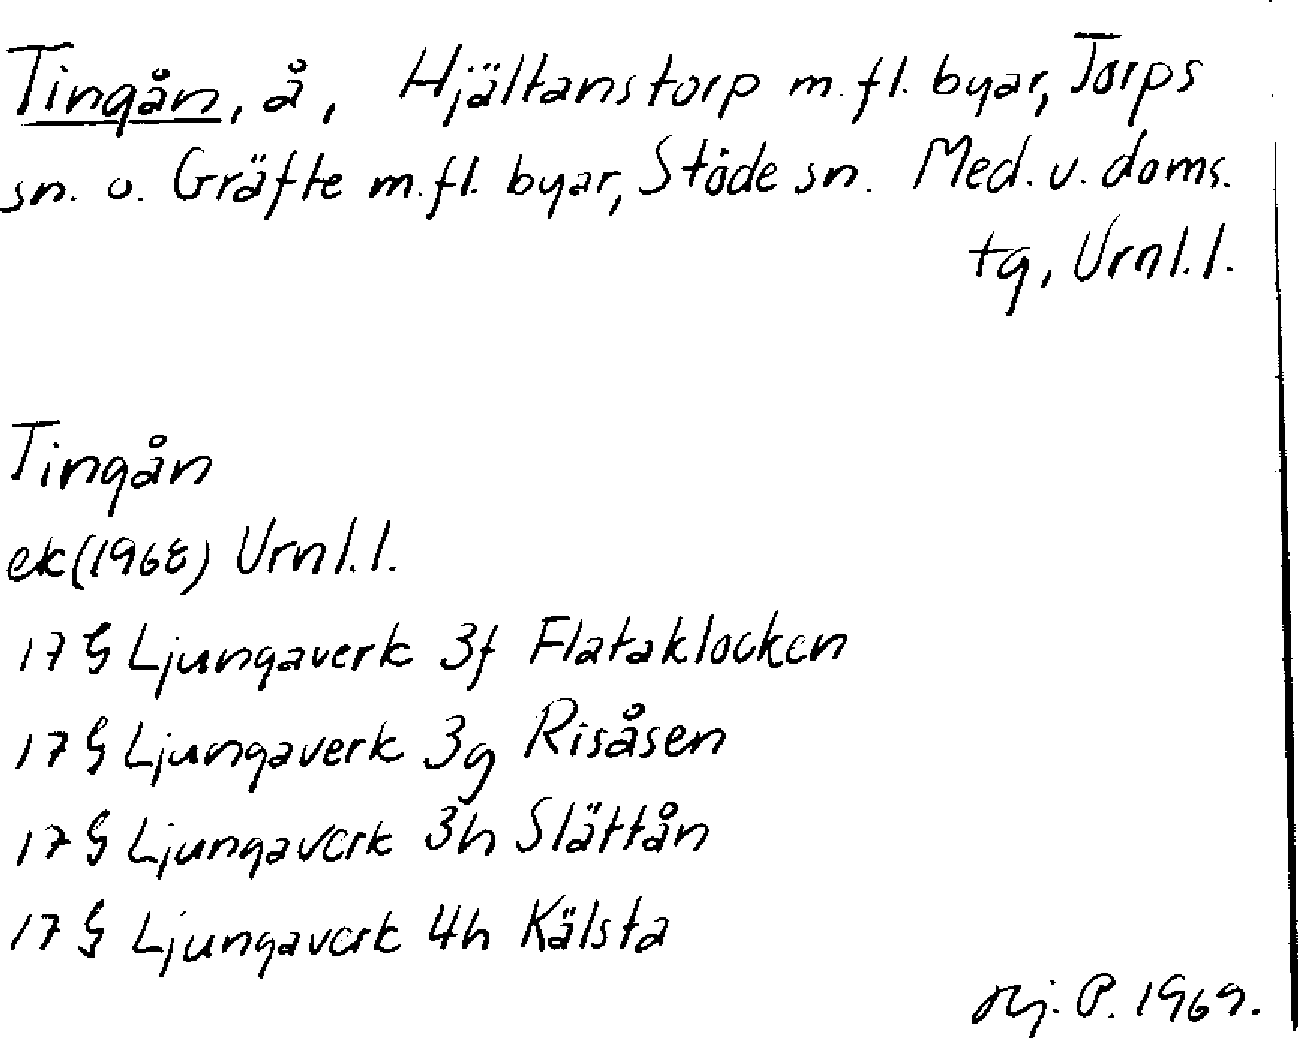 Tingån, å, Hjältanstorp m.fl. byar, Torps
sn. o. Gräfte m.fl. byar, Stöde sn. Med. v. doms.
tg, Urnl.l.
Tingån
ek (1968) Urnl.l.
17 G Ljungaverk 3f Flataklocken
17 G Ljungaverk 3g Risåsen
17 G Ljungaverk 3h Slättån
17 G Ljungaverk 4h Kälsta
Hj. P. 1969.